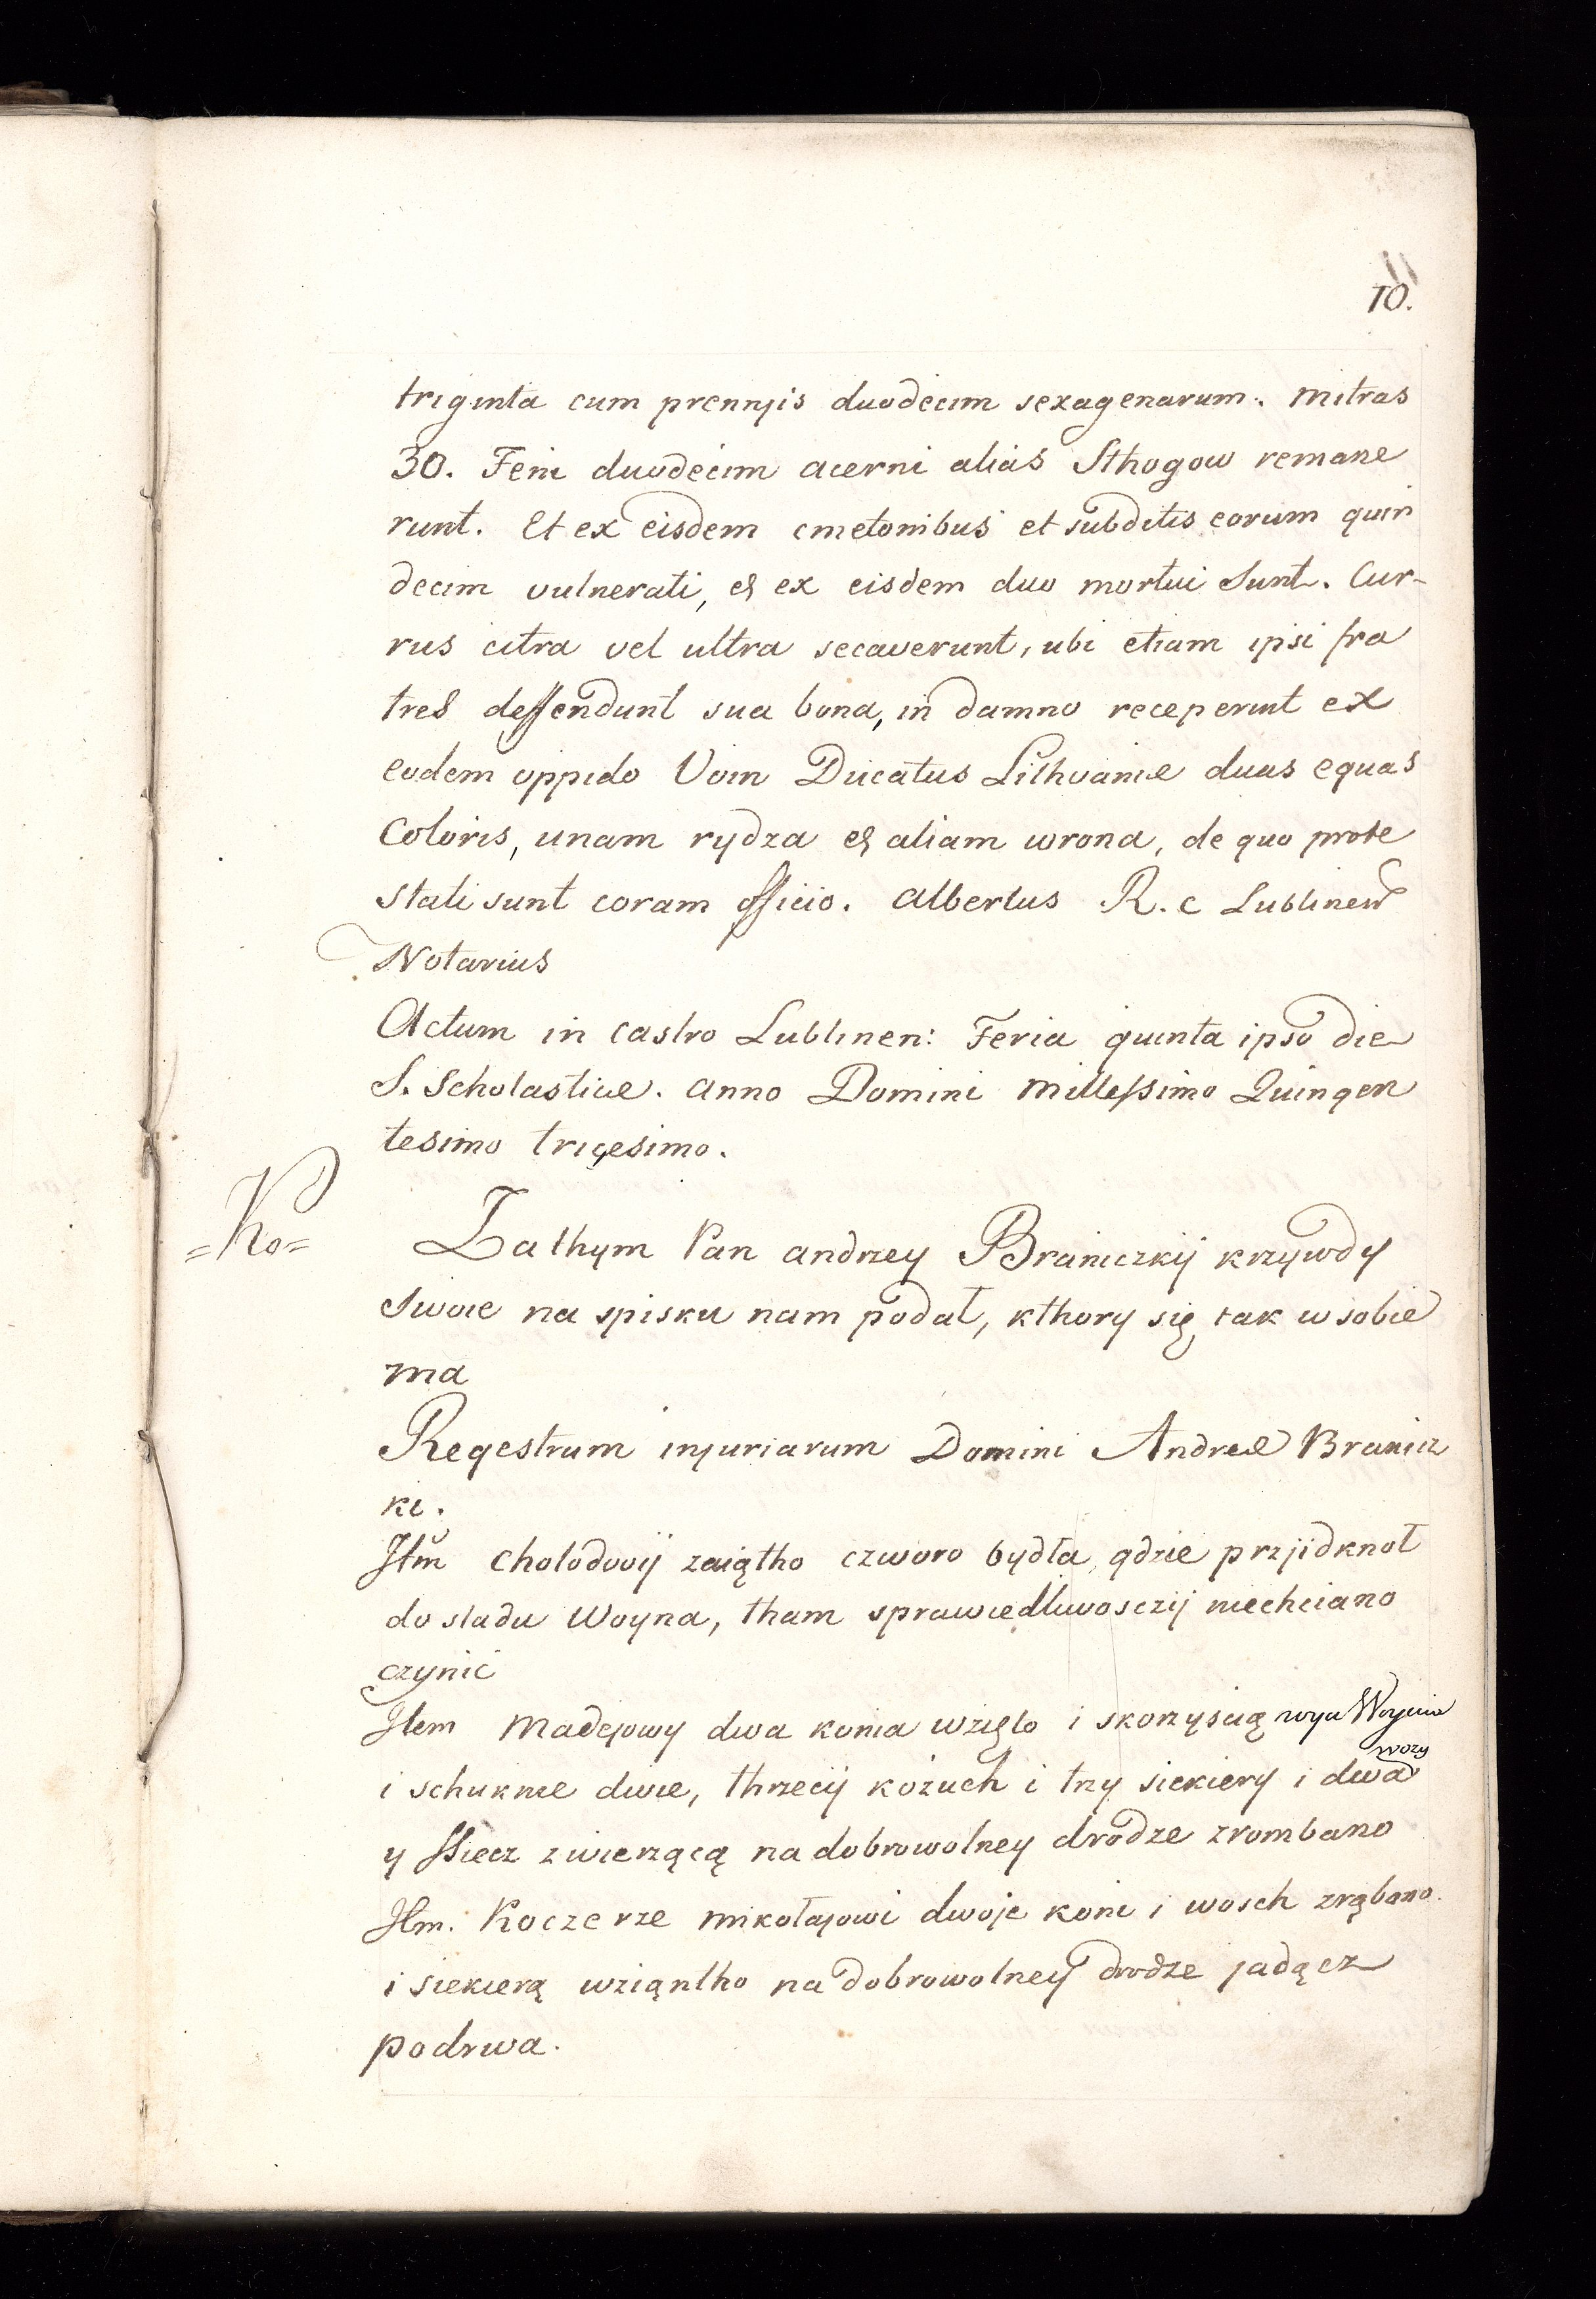 11
10.
triginta cum prennyis duodecim sexagenarum. mitras
30. Feni duodecim acerni alias Sthogow remane
runt. Et ex eisdem cmetonibus et subditis eorum quin
decim vulnerati, & ex eisdem duo mortui sunt. Cur-
rus citra vel ultra secaverunt, ubi etiam ipsi fra
tres deffendunt sua bona, in damno receperunt ex
eodem oppido Voin Ducatus Lithvaniæ duas equas
Coloris, unam rydza & aliam wrona, de quo prote
stati sunt coram officio. Albertus R. c Lublinen
Notarius
Actum in castro Lublinen: Feria quinta ipso die
S. Scholasticæ. Anno Domini Millessimo Quingen
tesimo tricesimo.
=Ko=
Zathym Pan Andrzey Braniczkij krzywdy
swoie na spisku nam podał, kthory się tak w sobie
ma
Regestrum injuriarum Domini Andreæ Branicz
ki.
Itm Cholodovij zaiątho czworo bydła, gdzie przjidknoł
do sladu Woyna, tham sprawiedliwosczij niechciano
czynic
Item Madejowy dwa konia wzięto i skorzyscią Woynia
i schuknie dwie, thrzecij kożuch i trzy siekiery i dwa wozy
y Ssiecz zwierzącą na dobrowolney drodze zrombano
Itm. Koczerze Mikołajowi dwoje koni i wosch zrąbano
i siekierą wziąntho na dobrowolney drodze jadącz
podrwa.